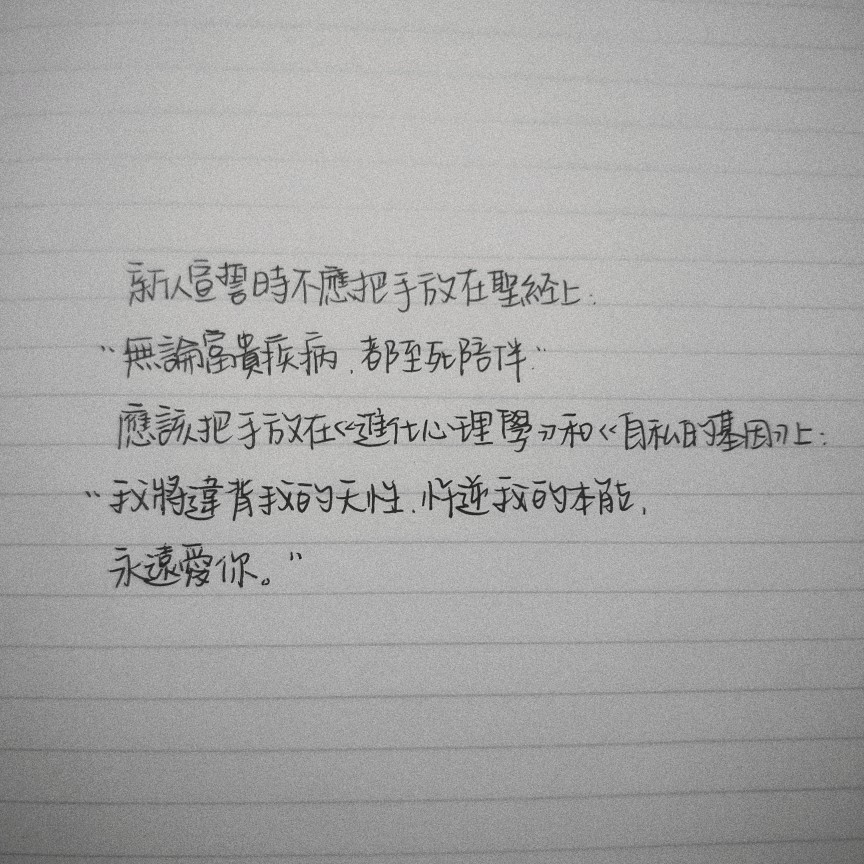 新人宣誓時不應把手放在聖經上：
"無論富貴疾病，都至死陪伴"
應該把手放在《進化心理學》和《自私的基因》上：
"我將違背我的天性，忤逆我的本能，
永遠愛你。"